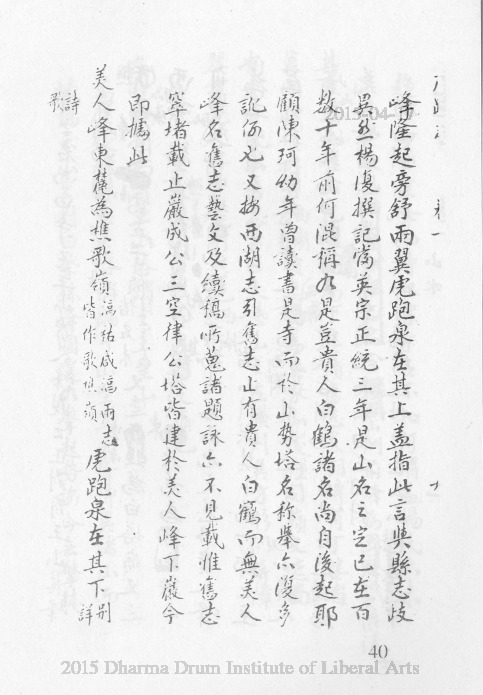 峰隆起旁舒兩翼虎跑泉在其上蓋指此言與縣志歧
異然楊復撰記當英宗正統三年是山名之定已在百
数十年前何混稱乃是豈貴人白鶴諸名尚自後起耶
顧陳珂幼年曾讀書是寺而於山勢塔名称舉亦復多
訛何也又按西湖志引舊志止有貴人白鶴而無美人
峰名舊志藝文及續稿所蒐諸題詠亦不見載惟舊志
窣堵載止巖成公三空律公塔皆建於美人峰下嚴今
即據此
美人峰東麓為樵歌嶺
志虎跑泉在其下別詳
詩歌
40
2015-04-
2015 Dharma Drum Institute of Liberal Arts